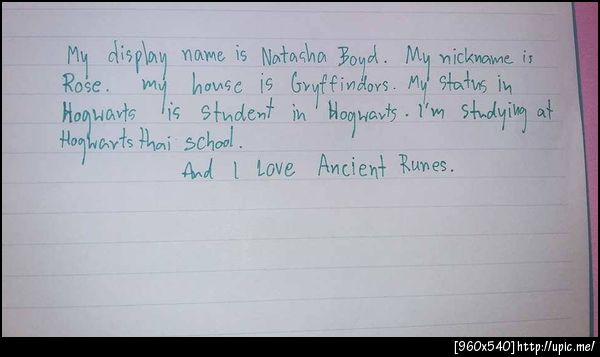 My display name is Natasha Boyd. My nickname is
Rose. my house is Gryffindors. My status in
Hogwarts is student in Hogwarts. I'm studying at
Hogwarts thai school.
And I Love Ancient Runes.
[960x540]http://upic.me/